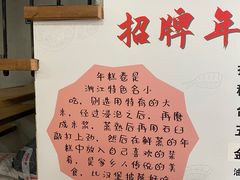 招牌年
年糕卷是
浙江特色名小
吃，则选用特有的大
米，经过浸泡之后，再磨
成米浆，蒸熟后再用石臼
敲打上劲，然后在鲜蒸的年
糕中放入自己喜欢的菜
肴，是家乡人传统的美
食，比汉堡披萨好吃